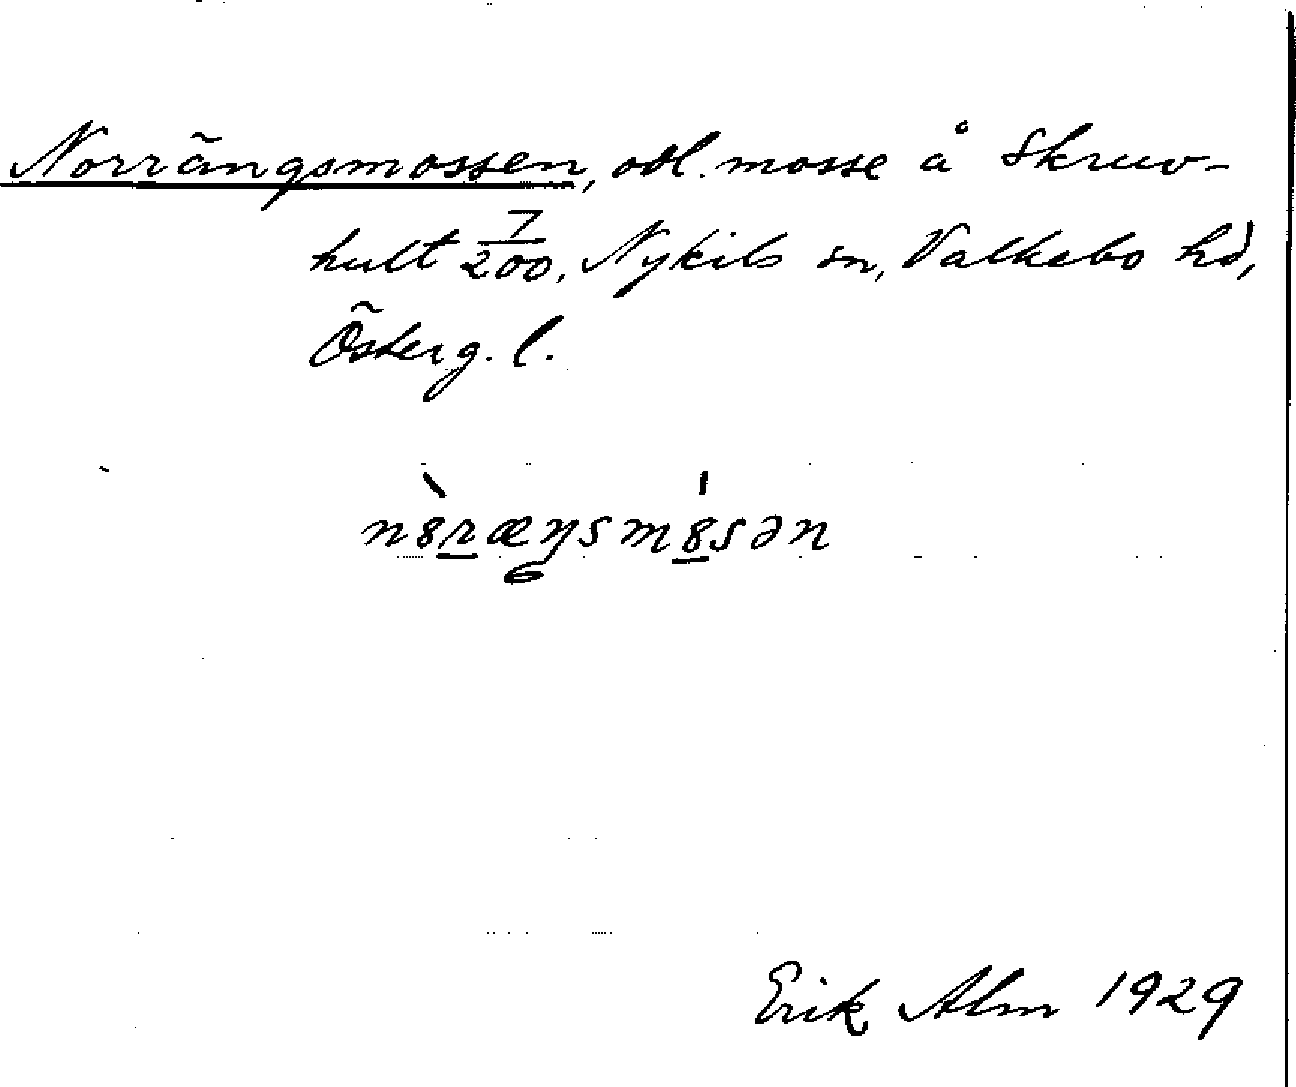 Norrängsmossen, odl. mosse å Skruv-
hult 7/200, Nykils sn, Valkebo hd,
Österg. l.
Erik Alm 1929